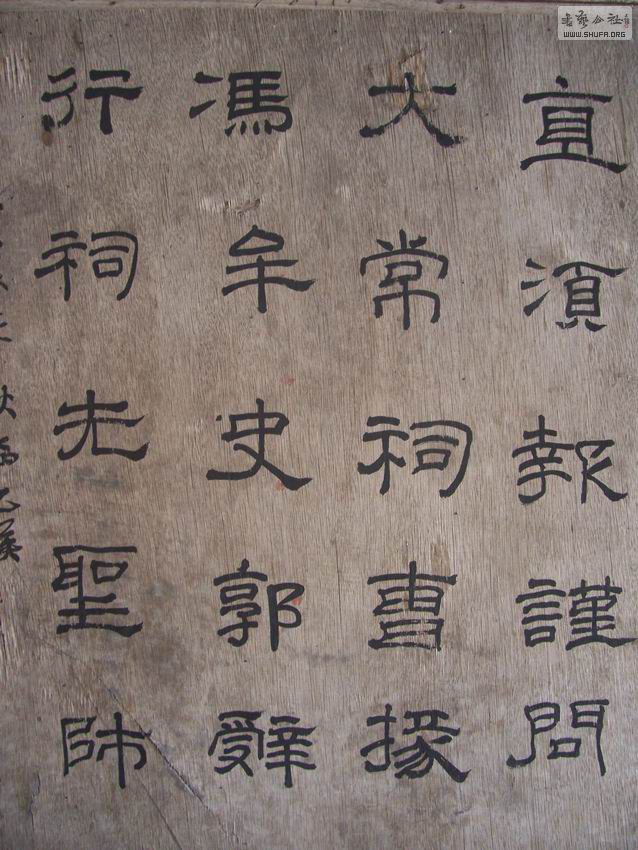 直須報謹問
大常祠曹掾
馮牟史郭辤
行祠先聖師
書藝公社
WWW.SHUFA.ORG